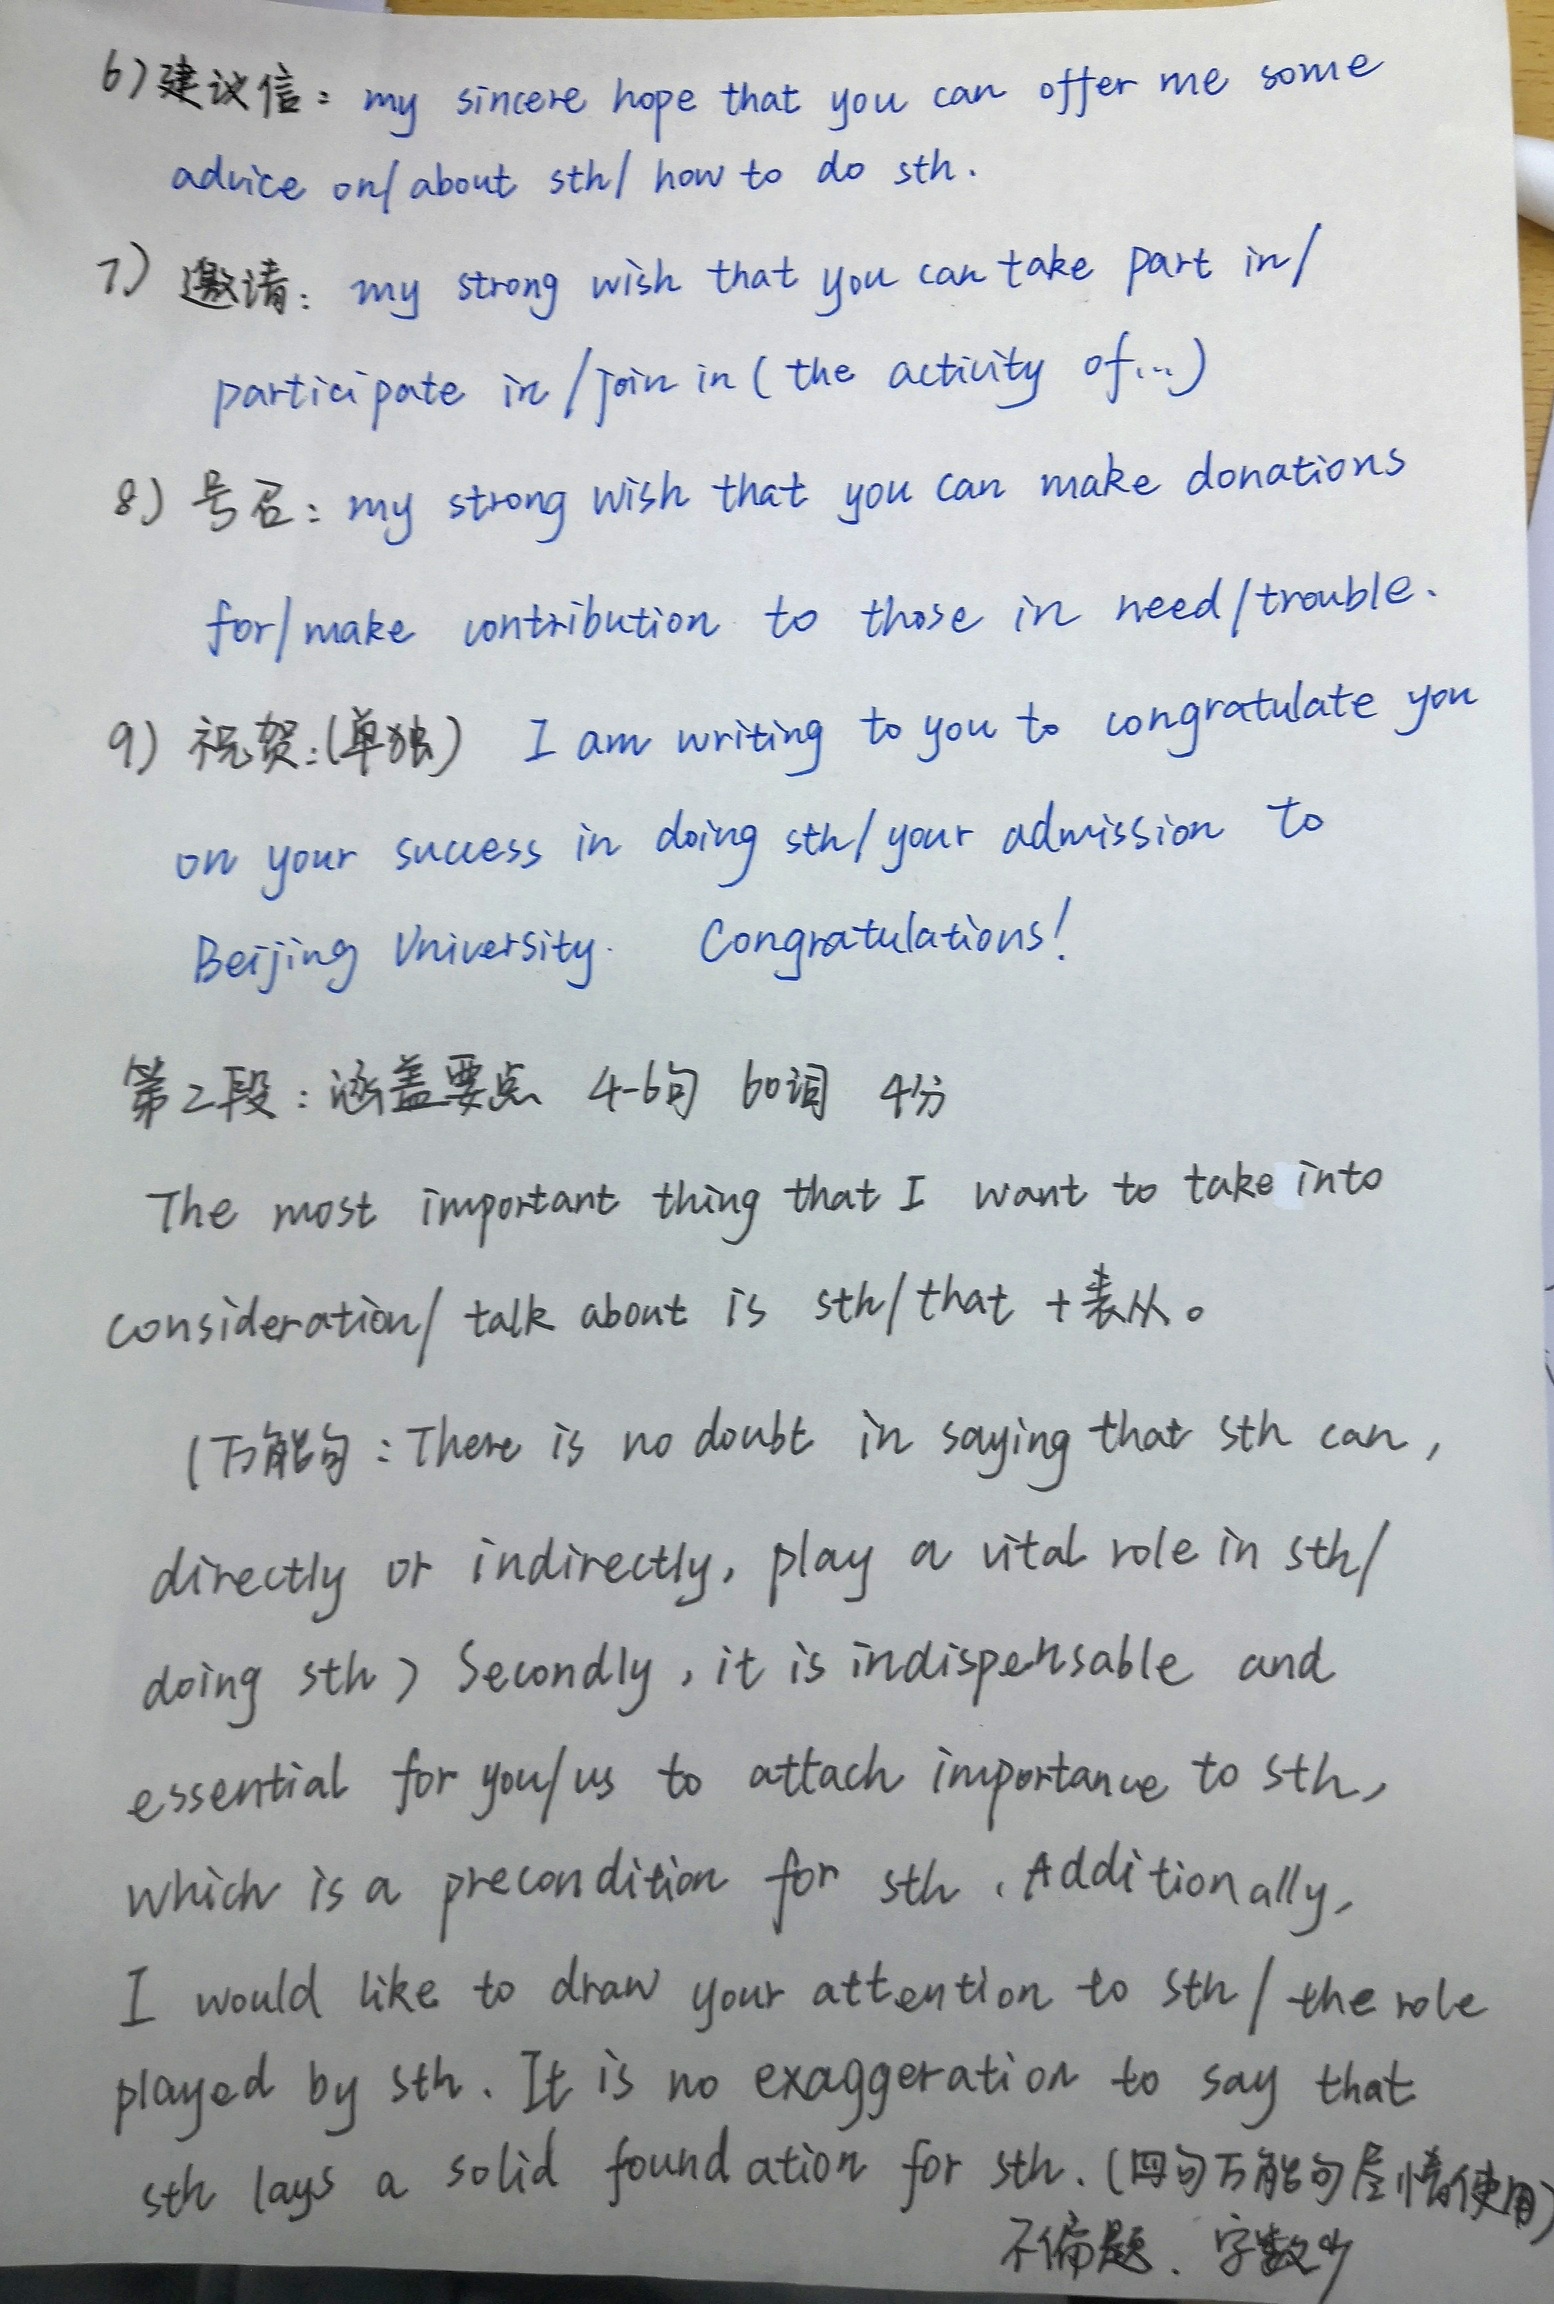 6)建议信: my sincere hope that you can offer me some
advice on/about sth/ how to do sth.
7) 邀请: my strong wish that you can take part in/
participate in/join in (the activity of...)
8) 号召: my strong wish that you can make donations
for/make contribution to those in need/trouble.
9) 祝贺:(单独) I am writing to you to congratulate you
on your success in doing sth/your admission to
Beijing University. Congratulations!
第2段:涵盖要点 4-6句 60词 4分
The most important thing that I want to take into
consideration/ talk about is sth/that +表从。
(万能句:There is no doubt in saying that sth can,
directly or indirectly, play a vital role in sth/
doing sth) Secondly, it is indispensable and
essential for you/us to attach importance to sth,
which is a precondition for sth. Additionally,
I would like to draw your attention to sth/the role
played by sth. It is no exaggeration to say that
sth lays a solid foundation for sth. (四句万能句 情使用)
不偏题、字数少